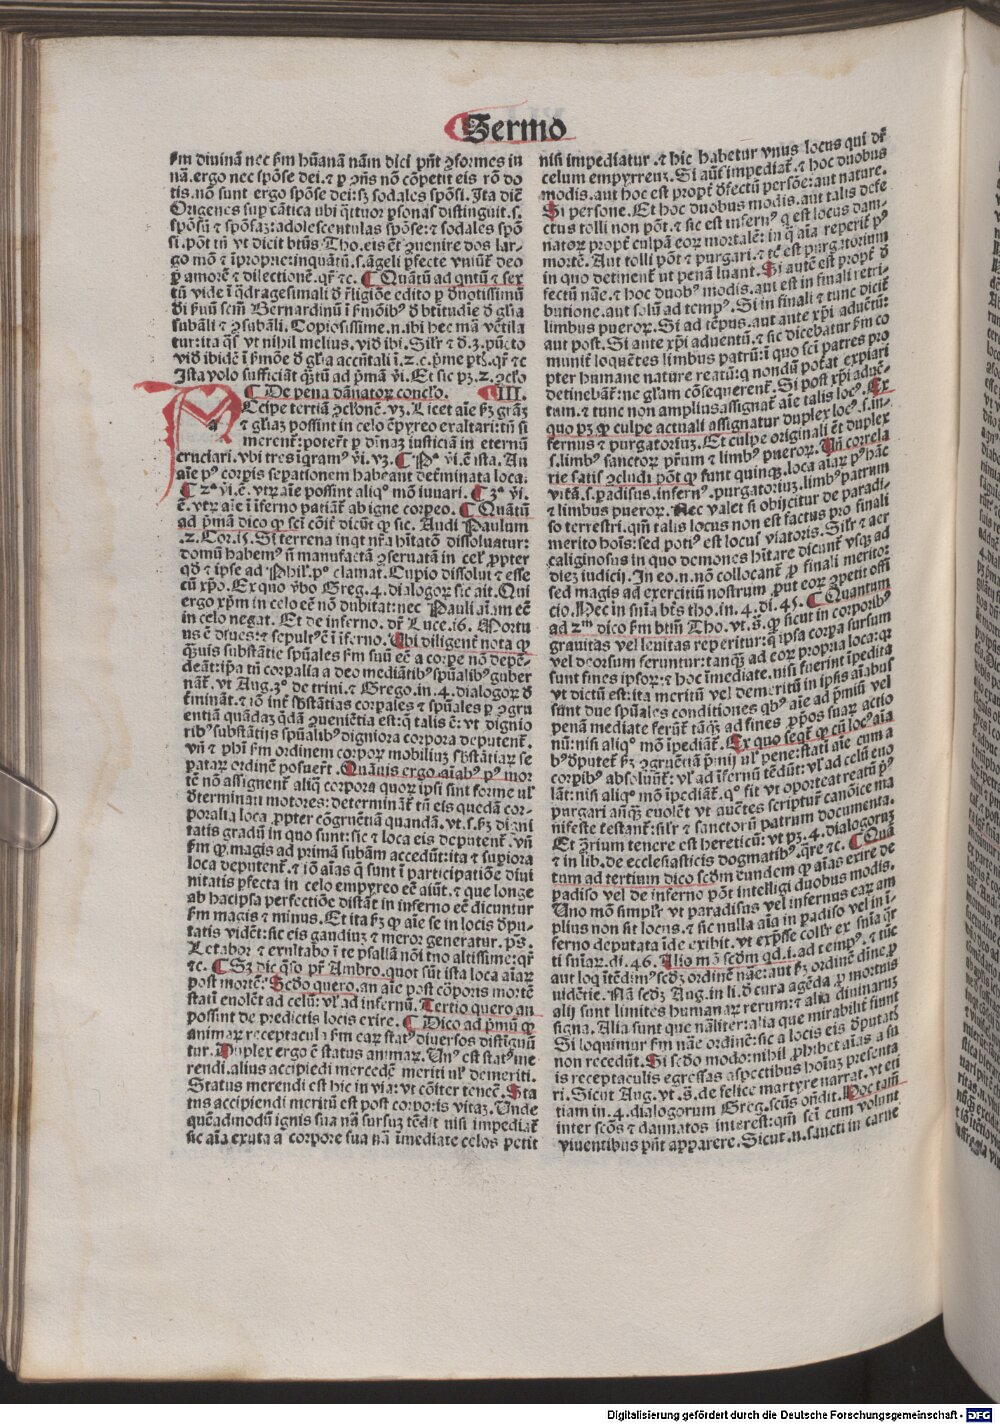 Sermo
ẜm diuinã nec ẜm hũanã nãm dici pñt ꝯformes in
nã. ergo nec spõse dei. ⁊ ꝑ ꝯñs nõ cõpetit eis rõ do
tis. nõ sunt ergo spõse dei: sꝫ sodales spõsi. Ita dic̃
Origenes suꝑ cãtica vbi q̃ituor ꝑsonas distinguit. s.
spõsũ ⁊ spõsaꝫ: adolescentulas spõse: ⁊ sodales spõ
si. põt tñ vt dicit btũs Tho. eis eẽt ꝯuenire dos lar-
go mõ ⁊ ĩproprie: inquãtũ. s. ãgeli ꝑfecte vniũt̃ deo
ꝑ amorẽ ⁊ dilectionẽ. qr̃ ⁊c. ¶ Quãtũ ad qntũ ⁊ sex
tũ vide ĩ q̃dragesimali ð r̃ligiõe edito ꝑ ðuotissimũ
di ẜuũ scm̃ Bernardinũ ĩ ẜmõibꝰ ð btĩtudĩe ð gl̃ia
subãli ⁊ ꝯsubãli. Copiosissime. n. ibi hec mã vẽtila
tur: ita qꝫ vt nihil melius. vid̃ ibi. Sil̃r ⁊ ð. 3. pũcto
vid̃ ibidẽ ĩ ẜmõe ð gl̃ia accñtali ĩ. 2. c. p̃me pt̃. qr̃ ⁊c
Ista volo sufficiãt q̃tũ ad p̃mã ꝟi. Et sic pꝫ. 2. ꝯclo
¶ De pena dãnatoꝝ conclo. ¶ III.
REcipe tertiã ꝯclonẽ. vꝫ. Licet aĩe ẜꝫ grãꝫ
⁊ gl̃iaꝫ possint in celo ẽpyreo exaltari: tñ si
merent̃: poterũt ꝑ diuinaꝫ iusticiã in eternũ
cruciari. vbi tres ĩqramꝰ ꝟi. vꝫ. ¶ Pᵃ ꝟi. ẽ ista. An
aĩe pꝰ corꝑis seꝑationem habeant det̃minata loca.
¶ 2ᵃ ꝟi. ẽ. vtꝝ aĩe possint aliqͦ mõ iuuari. ¶ 3ᵃ ꝟi.
ẽ. vtꝝ aĩe ĩ ĩferno patiãt̃ ab igne corꝑeo. ¶ Quãtũ
ad p̃mã dico ꝙ sci cõit̃ dicũt ꝙ sic. Audi Paulum
.2. Cor. 15. Si terrena inqt nr̃a hĩtatõ dissoluatur:
domũ habemꝰ nõ manufactã ꝯseruatã in celꝭ ꝓpter
qð ⁊ ipse ad Phil. pͦ clamat. Cupio dissolui ⁊ esse
cũ xp̃o. Ex quo ꝟbo Greg. 4. dialogoꝝ sic ait. Qui
ergo xp̃m in celo eẽ nõ dubitat: nec Pauli aĩam eẽ
in celo negat. Et de inferno. dr̃ Luce. 16. Mortu
us ẽ diues: ⁊ sepultꝰ ẽ ĩ ĩferno. Vbi diligent̃ nota ꝙ
q̃uis substãtie spũales ẜm suũ eẽ a corꝑe nõ depẽ-
deãt: ip̃a tñ corꝑalia a deo mediãtibꝰ spũalibꝰ guber
nãt̃. vt Aug. 3ͦ de trini. ⁊ Grego. in. 4. dialogoꝝ ð
t̃minãt. ⁊ iõ int̃ sb̃stãtias corꝑales ⁊ spũales ꝑ ꝯgru
entiã quãdaꝫ q̃dã ꝯueniẽtia est: q̃ talis ẽ: vt dignio
ribꝰ substãtijs spũalibꝰ digniora corpora deputent̃.
vñ ⁊ phĩ ẜm ordinem corpoꝝ mobiliuꝫ sb̃stãtiaꝝ se
ꝑataꝝ ordinẽ posuer̃t. Quãuis ergo aĩabꝰ pꝰ mor
tẽ nõ assignent̃ aliq̃ corpora quoꝝ ip̃i sunt forme ul̃
ðterminati motores: determinãt̃ tñ eis quedã cor-
poralia loca ꝓpter cõgruẽtiã quandã. vt. s. ẜꝫ digni
tatis gradũ in quo sunt: sic ⁊ loca eis deputent̃. vñ
ẜm ꝙ magis ad primã subãm accedũt: ita ⁊ suꝑiora
loca deputent̃. ⁊ iõ aĩas q̃ sunt ĩ participatiõe diui
nitatis ꝑfecta in celo empyreo eẽ aiũt. ⁊ que longe
ab hacip̃sa perfectiõe distãt in inferno eẽ dicuntur
ẜm magis ⁊ minus. Et ita ẜꝫ ꝙ aĩe se in locis ðpu-
tatis vidẽt: sic eis gaudiuꝫ ⁊ meror generatur. pš.
Letabor ⁊ exultabo ĩ te psallã nõi tuo altissime: qr̃
⁊c. ¶ Sꝫ dic q̃so pr̃ Ambro. quot sũt ista loca aĩaꝝ
post mortẽ: Sc̃do quero. an aĩe post cõꝑoris mortẽ
statĩ euolẽt ad celũ: ul̃ ad infernũ. Tertio quero an
possint de predictis locis exire. ¶ Dico ad p̃mũ ꝙ
animaꝝ receptacula ẜm eaꝝ statꝰ diuersos distiguũ
tur. Duplex ergo ẽ status animaꝝ. Unꝰ est statꝰ me
rendi. alius accipiẽdi mercedẽ meriti ul̃ demeriti.
Status merendi est hic in via: vt cõiter tenet̃. Sta
tus accipiendi meritũ est post corꝑoris vitaꝫ. Unde
quẽadmodũ ignis sua nã sursuꝫ tẽdit nisi impediat̃
sic aĩa exuta a corpore sua nã ĩmediate celos petit
nisi impediatur. ⁊ hic habetur vnus locus qui dr̃
celum empyreuꝫ. Si aũt̃ impediat̃. ⁊ hoc duobus
modis. aut hoc est propt̃ ðfectũ persõe: aut nature.
Si persone. Et hoc duobus modis. aut talis defe
ctus tolli non põt. ⁊ sic est infernꝰ q̃ est locus dam-
natoꝝ propt̃ culpã eoꝝ mortalẽ: in q̃ aĩa reperit̃ pꝰ
mortẽ. Aut tolli põt ⁊ purgari. ⁊ tc̃ est purgatorium
in quo detinent̃ ut penã luant. Si autẽ est propt̃ ð
fectũ nãe. ⁊ hoc duobꝰ modis. aut est in finali retri-
butione. aut solũ ad tempꝰ. Si in finali ⁊ tunc dicit̃
limbus pueroꝝ. Si ad tẽpus. aut ante xp̃i aduẽtũ:
aut post. Si ante xp̃i aduentũ. ⁊ sic dicebatur ẜm co
munit̃ loquẽtes limbus patrũ: ĩ quo sci patres pro
pter humane nature reatũ: q̃ nondũ potat̃ expiari
detinebãt̃: ne gl̃am cõsequerent̃. Si post xp̃i aduẽ-
tum. ⁊ tunc non ampliusassignat̃ aĩe talis locꝰ. Ex
quo pꝫ ꝙ culpe actuali assignatur duplex locꝰ. s. in-
fernus ⁊ purgatoriuꝫ. Et culpe originali eñt duplex
s. limbꝰ sanctoꝝ pr̃um ⁊ limbꝰ pueroꝝ. Tñ correla
rie satis ꝯcludi põt ꝙ sunt quinqꝫ. loca aĩaꝝ pꝰ hãc
vitã. s. paradisus. infernꝰ. purgatoriuꝫ. limbꝰ patrum
⁊ limbus pueroꝝ. Nec valet si obijcitur de paradi-
so terrestri. qm̃ talis locus non est factus pro finali
merito hoĩs: sed potiꝰ est locus viatoris. Sil̃r ⁊ aer
caliginosus in quo demones hĩtare dicunt̃ vsqꝫ ad
dieꝫ iudicij. In eo. n. nõ collocant̃ ꝓ finali meritoꝝ
sed magis ad exercitiũ nostrum ꝓut eoꝝ ꝯpetit offi
cio. Hec in snĩa bt̃s tho. in. 4. di. 45. ¶ Quantum
ad 2ᵐ dico ẜm btm̃ Tho. vt. š. ꝙ sicut in corporibꝰ
grauitas vel leuitas reperitur: q̃ ipsa corꝑa sursum
vel deorsum feruntur: tanq̃ ad eoꝝ propria loca: q̃
sunt fines ipsoꝝ: ⁊ hoc ĩmediate. nisi fuerint ĩpedita
vt dictũ est: ita meritũ vel demeritũ in ipsis aĩabus
sunt due spũales conditiones qbꝰ aĩe ad p̃miũ vel
penã mediate ferũt̃ tãqꝫ ad fines ꝓpõs suaꝝ actio
nũ: nisi aliqͦ mõ ĩpediãt̃. Ex quo seqt̃ ꝙ cũ locꝰ aĩa
bꝰ ðputet̃ ẜꝫ ꝯgruẽtiã p̃mij ul̃ pene: statĩ aĩe cum a
corꝑibꝰ absoluũt̃: ul̃ ad ĩfernũ tẽdũt: ul̃ ad celũ euo
lãt: nisi aliqͦ mõ ĩpediãt̃. qͦ fit vt oporteat reatũ pꝰ
purgari anqꝫ euolẽt vt auc̃tes scripturꝭ canõice ma
nifeste testant̃: sil̃r ⁊ sanctorũ patrum documenta.
Et ꝯrium tenere est hereticũ: vt pꝫ. 4. dialogoruꝫ
⁊ in lib. de ecclesiasticis dogmatibꝰ. qre ⁊c. ¶ Quã
tum ad tertium dico sc̃dm eundem ꝙ aĩas exire de
padiso vel de inferno põt intelligi duobus modis.
Uno mõ simpl̃r vt paradisus vel infernus eaꝝ am
plius non sit locus. ⁊ sic nulla aĩa in padiso vel in ĩ-
ferno deputata ĩde exibit. vt exp̃sse collꝭ ex snĩa q̃r
ti snĩaꝝ. di. 46. Alio mõ sc̃dm qd. i. ad tempꝰ. ⁊ tũc
aut loq̃ ĩtẽdimꝰ sedꝫ ordinẽ nãe: aut ẜꝫ ordinẽ diuĩe ꝓ
uidẽtie. Nã sedꝫ Aug. in li. ð cura agẽda ꝓ mortuis
alij sunt limites humanaꝝ rerum: ⁊ alia diuinaruꝫ
signa. Alia sunt que nãliter: alia que mirabilit̃ fiunt
Si loquimur ẜm nãe ordinẽ: sic a locis eis ðputatꝭ
non recedũt. Si sc̃do modo: nihil ꝓhibet aĩas a su
is receptaculis egressas aspectibus hoĩuꝫ presenta
ri. Sicut Aug. vt. š. de felice martyre narrat. vt eti
tiam in. 4. dialogorum Greg. scũs oñdit. Hoc tam̃
inter sc̃os ⁊ dãnatos interest: qm̃ sci cum volunt
viuentibus pñt apꝑarere. Sicut. n. sancti in carne
Digitalisierung gefördert durch die Deutsche Forschungsgemeinschaft - DFG